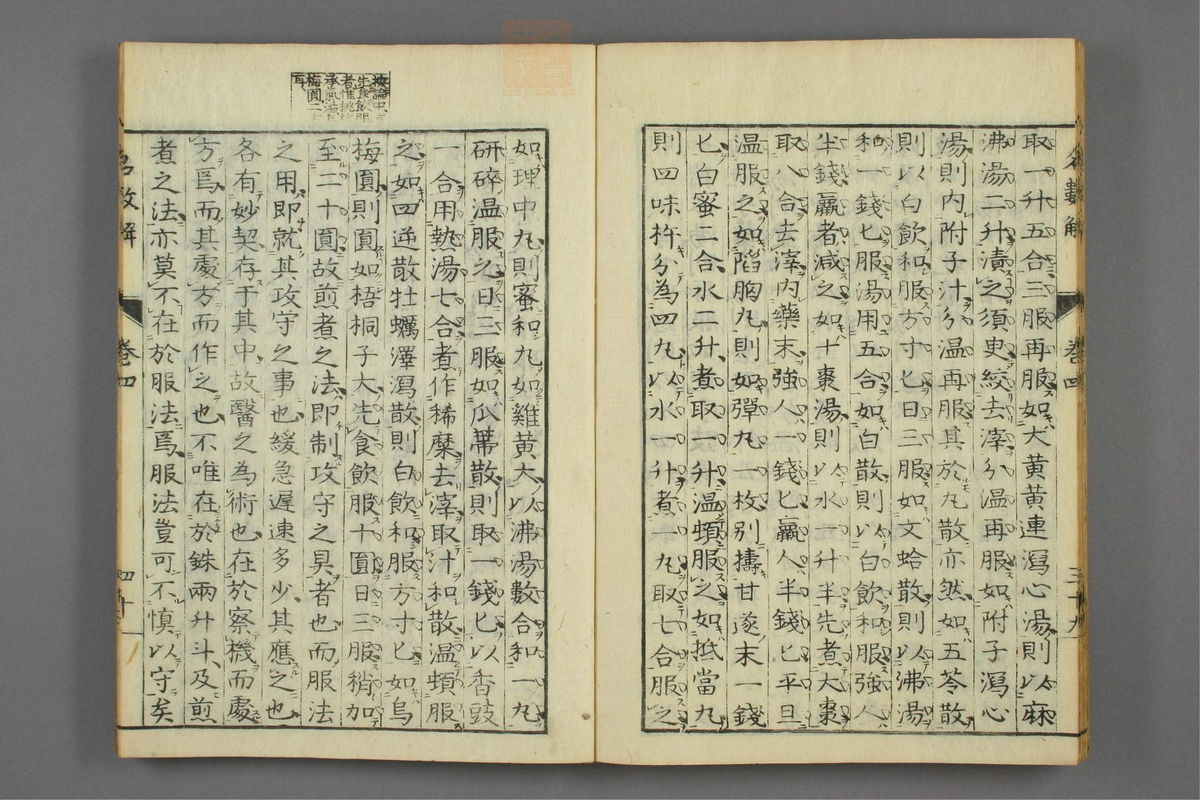 取一升五合三服再服如大黃黃連瀉心湯則以麻
沸湯二升漬之須臾絞去滓分温再服如附子瀉心
湯則內附子汁分温再服其於丸散亦然如五苓散
則以白飲和服方寸匕日三服如文蛤散則以沸湯
和一錢匕服湯用五合如白散則以白飲和服強人
半錢羸者減之如十棗湯則以水一升半先煮大棗
取八合去滓內藥末強人一錢匕羸人半錢匕平旦
温服之如陷胸丸則如彈丸一枚別擣甘遂末一錢
匕白蜜二合水二升煮取一升温頓服之如抵當丸
則四味杵分為四丸以水一升煮一丸取七合服之
名數解
卷四
三十九
如理中丸則蜜和丸如雞黃大以沸湯數合和一丸
研碎温服之日三服如瓜蔕散則取一錢匕以香豉
一合用熱湯七合者作稀糜去滓取汁和散温頓服
之如四逆散牡蠣澤瀉散則白飲和服方寸匕如烏
梅圓則圓如梧桐子大先食飲服十圓日三服稍加
至二十圓故煎煮之法即制攻守之具者也而服法
之用即就其攻守之事也緩急遲速多少其應之也
各有妙契存于其中故醫之為術也在於察機而處
方焉而其處方而作之也不唯在於銖兩升斗及煎
煮之法亦莫不在於服法焉服法豈可不慎以守矣
名數解
卷四
四十